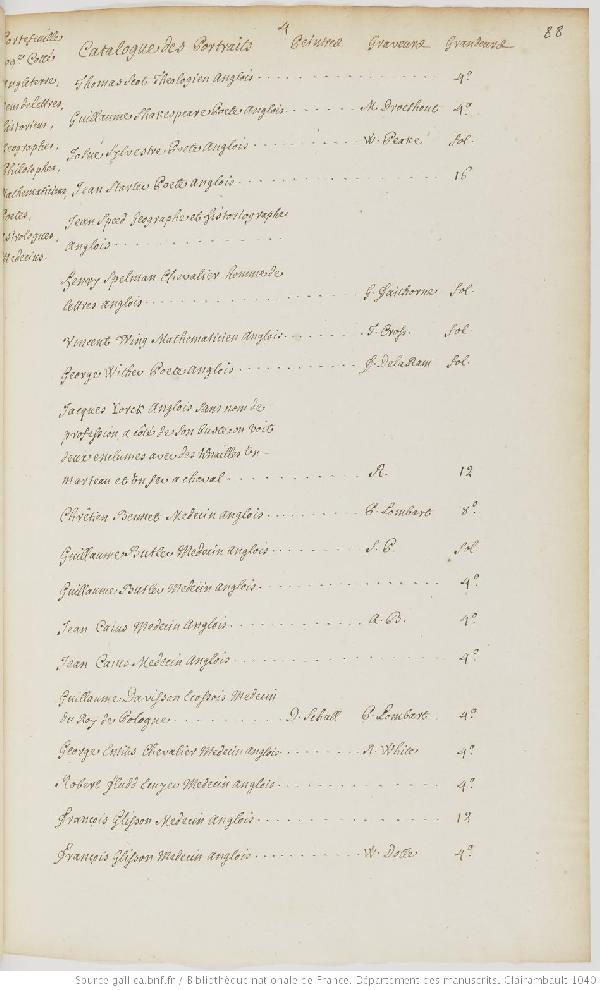 4
88
Catalogue des Portraits Peintres Graveurs Grandeurs
Portefeuille
Angleterre,
gens de lettres,
historiens,
Geographes,
Philosophes,
Mathematiciens,
Poetes,
Astrologues,
Medecins
Thomas Scot Theologien Anglois 4º
Guillaume Shakespeare Poete Anglois M. Droethout 4º
Josué Sylvestre Poete Anglois W. Peake fol.
Jean Starter Poete Anglois 16
Jean Speed Geographe et historiographe
Anglois
Henry Spelman Chevalier homme de
lettres anglois G. Faithorne fol.
Vincent Wing Mathematicien Anglois T. Cross. fol.
George Wither Poete Anglois F. DelaRam fol.
Jacques Yorck Anglois sans nom de
profession a côté de son buste on voit
deux enclumes avec des tenailles un
marteau et un fer a cheval R. 12
Chrêtien Bennet Medecin Anglois P. Lombart 8º
Guillaume Butler Medecin Anglois S. P. fol
Guillaume Butler Medecin Anglois 4º
Jean Caius Medecin Anglois A. B. 4º
Jean Caius Medecin Anglois 4º
Guillaume Davisson Ecossois Medecin
du Roy de Pologne D. Schult P. Lombart 4º
George Entius Chevalier Medecin anglois R. White 4º
Robert Fludd Ecuyer Medecin Anglois 4º
François Glisson Medecin Anglois 12
François Glisson Medecin Anglois W. Dolle 4º
Source gallica.bnf.fr / Bibliothèque nationale de France. Département des manuscrits. Clairambault 1040